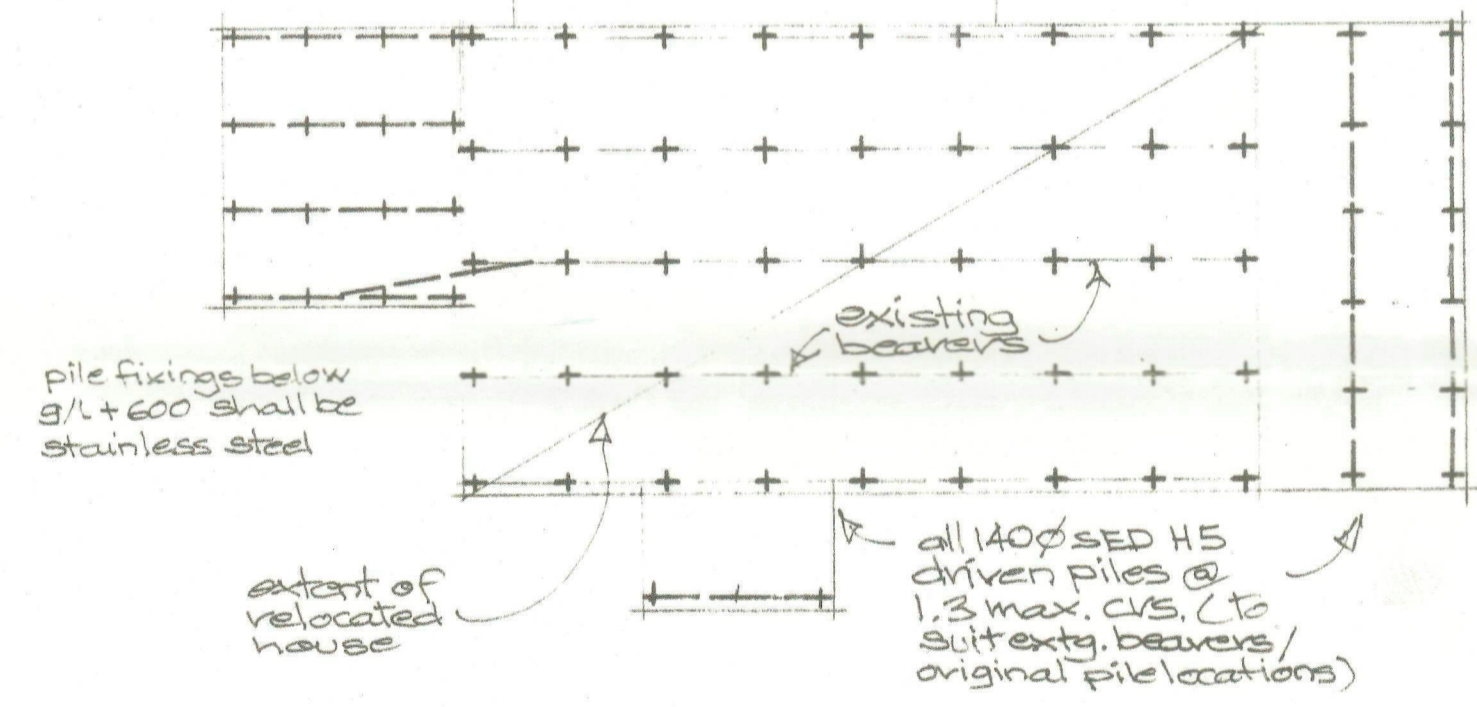 existing
bearers
pile fixings below
g/l + 600 shall be
stainless steel
extent of
relocated
house
all 140Ø SED H5
driven piles @
1.3 max. crs. (to
suit extg. bearers/
original pile locations)